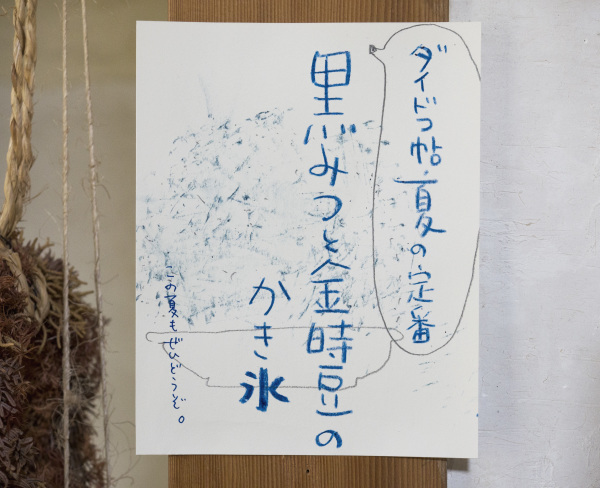 ダイドコ帖・夏の定番
黒みつと金時豆の
かき氷
この夏もぜひどうぞ。